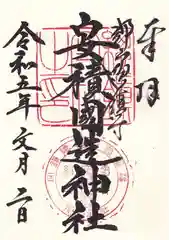 奉拝
郡山總鎮守
安積國造神社
令和五年文月二日